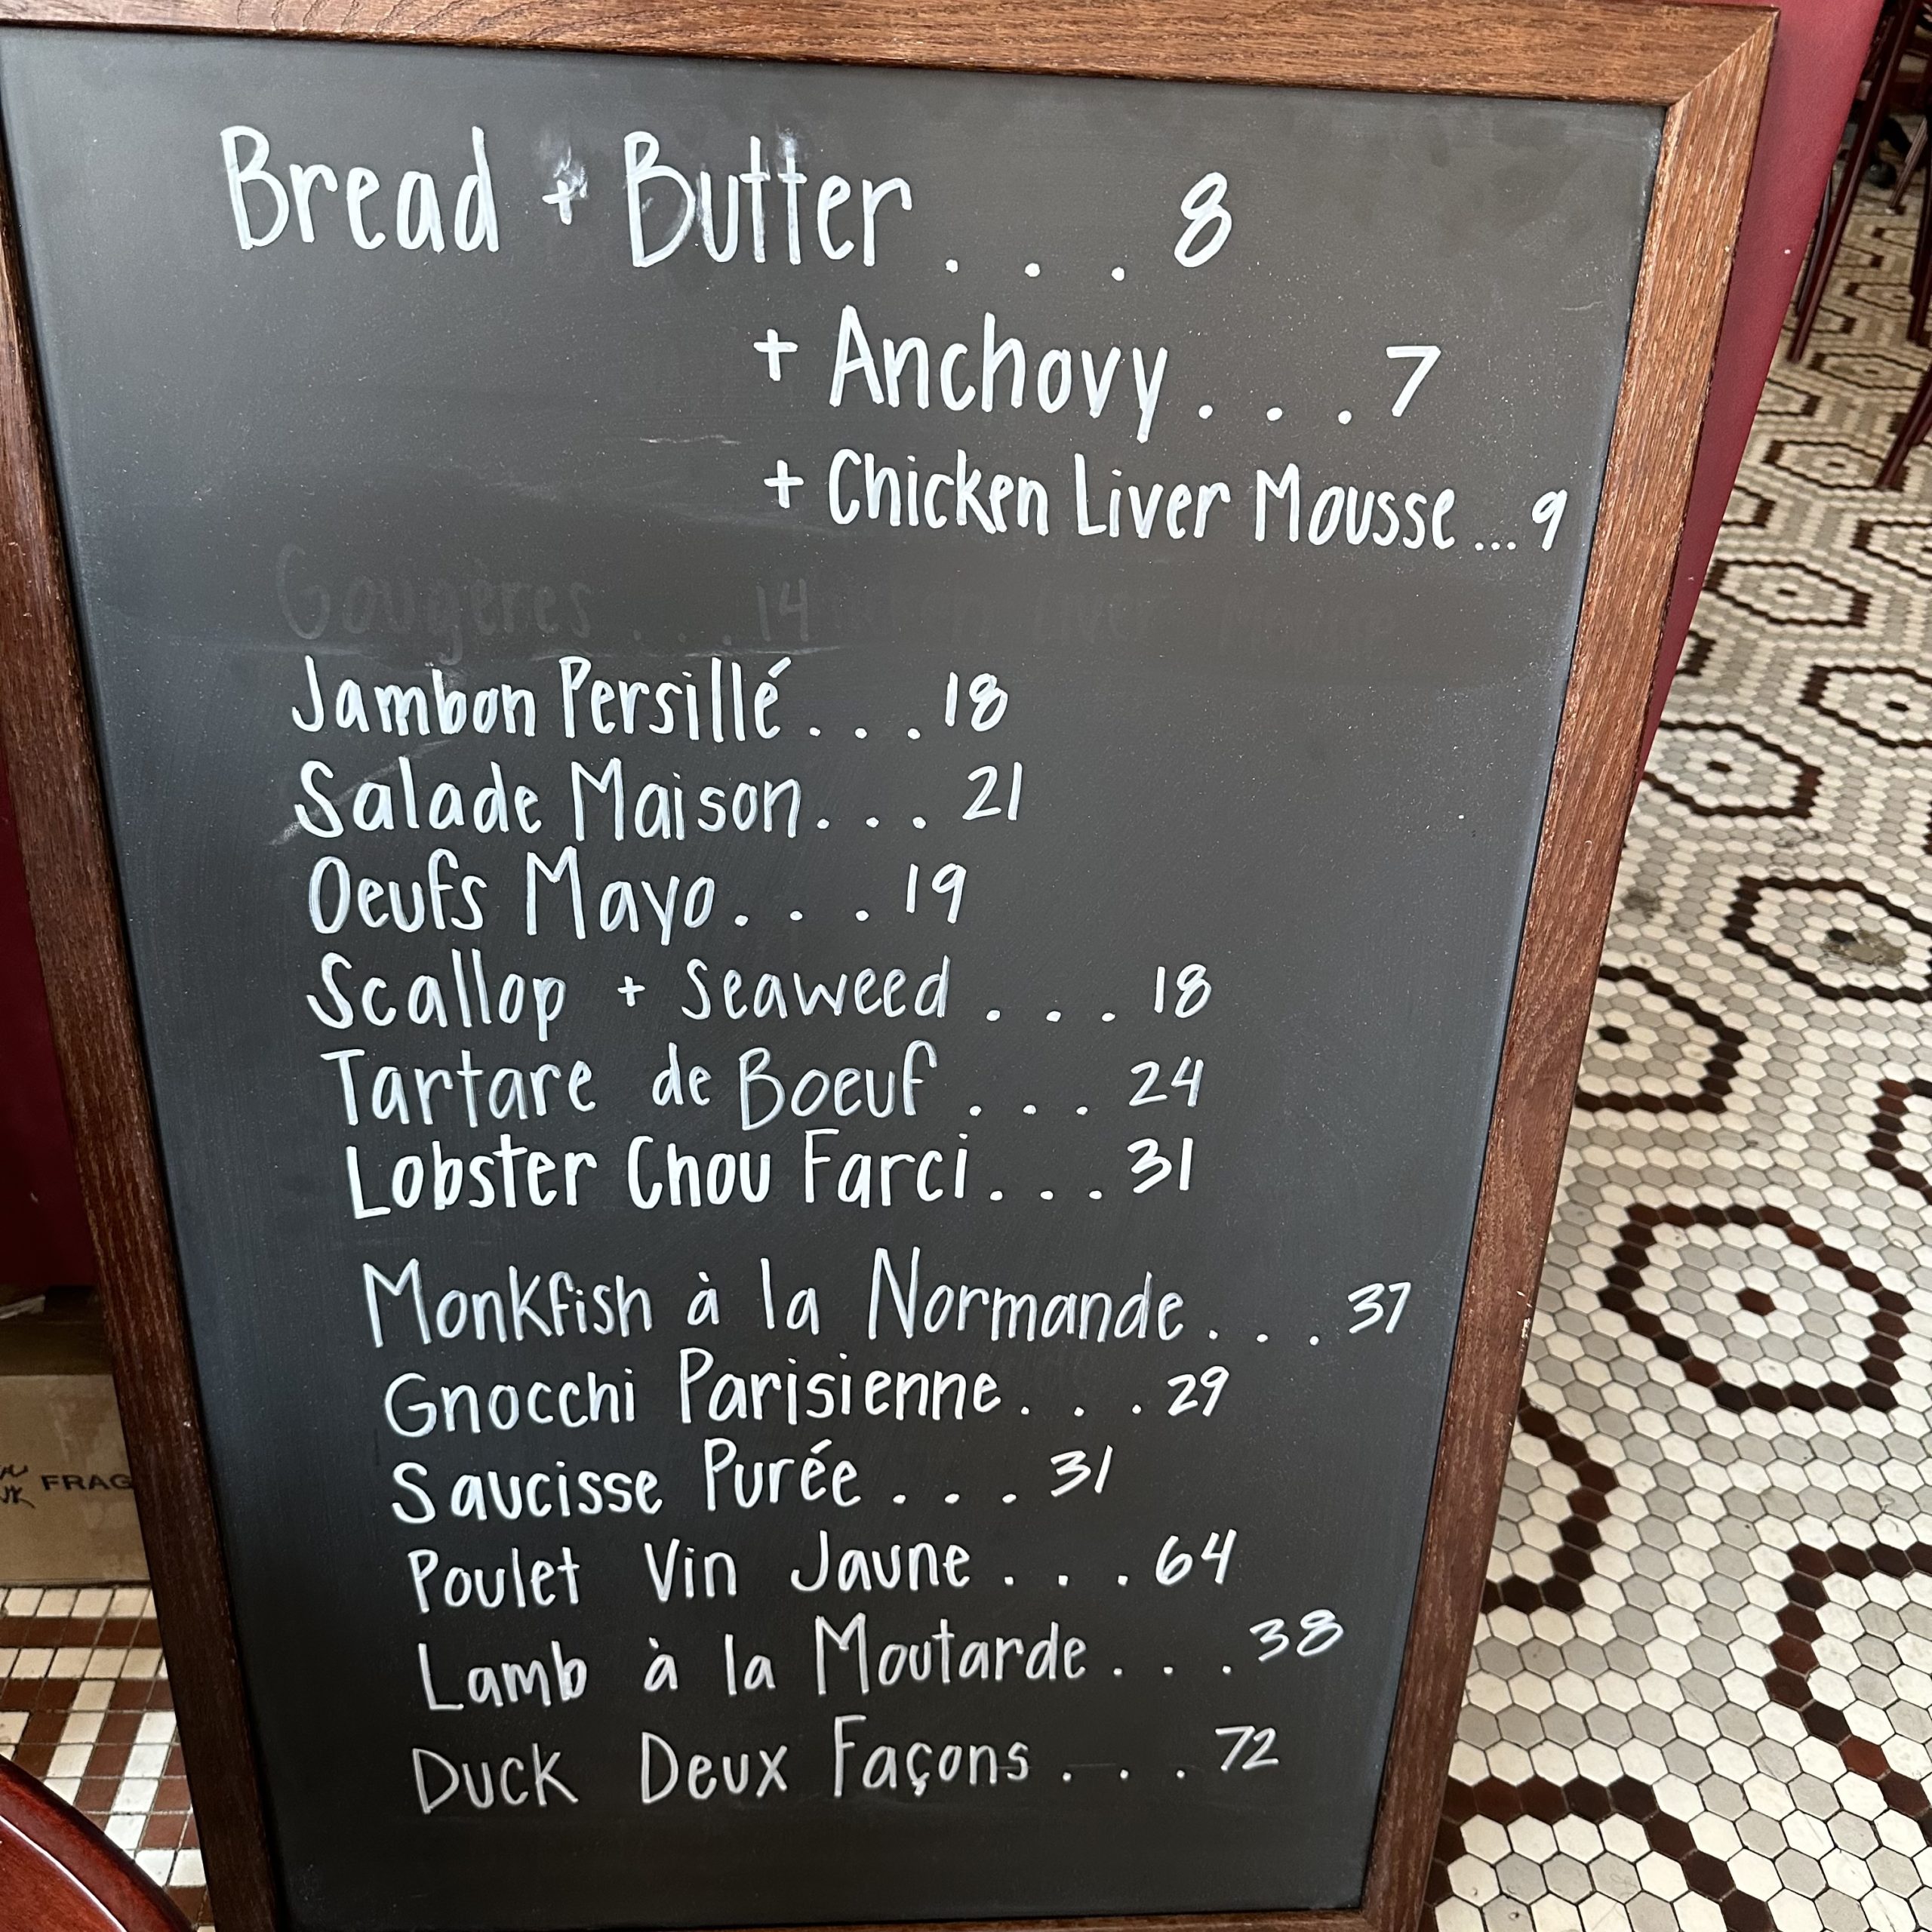 Bread + Butter . . . 8
+ Anchovy . . . 7
+ Chicken Liver Mousse ... 9
Gougères . . . 14
Jambon Persillé . . . 18
Salade Maison . . . 21
Oeufs Mayo . . . 19
Scallop + Seaweed . . . 18
Tartare de Boeuf . . . 24
Lobster Chou Farci . . . 31
Monkfish à la Normande . . . 37
Gnocchi Parisienne . . . 29
Saucisse Purée . . . 31
Poulet Vin Jaune . . . 64
Lamb à la Moutarde . . . 38
Duck Deux Façons . . . 72
FRAG